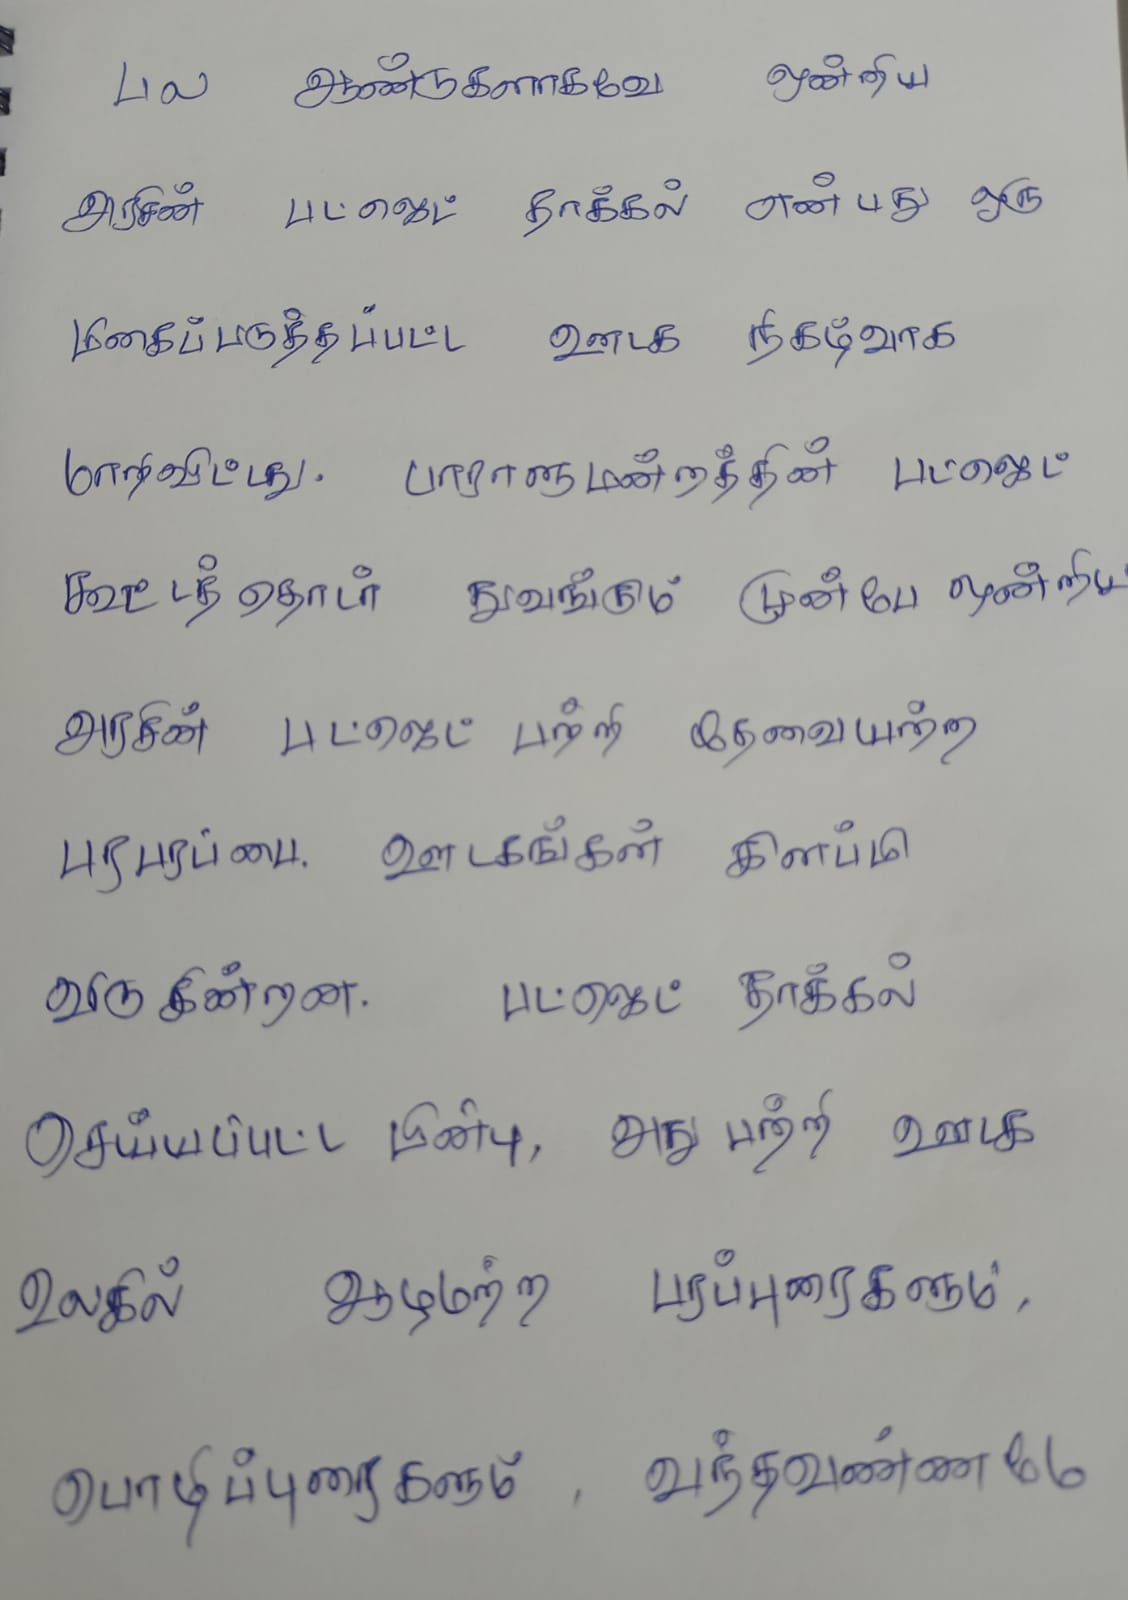 பல ஆண்டுகளாகவே ஒன்றிய
அரசின் பட்ஜெட் தாக்கல் என்பது ஒரு
மிகைப்படுத்தப்பட்ட ஊடக நிகழ்வாக
மாறிவிட்டது. பாராளுமன்றத்தின் பட்ஜெட்
கூட்டத் தொடர் துவங்கும் முன்பே ஒன்றிய
அரசின் பட்ஜெட் பற்றி தேவையற்ற
பரபரப்பை. ஊடகங்கள் கிளப்பி
விடுகின்றன. பட்ஜெட் தாக்கல்
செய்யப்பட்ட பின்பு, அது பற்றி ஊடக
உலகில் ஆழமற்ற பரப்புரைகளும்,
பொழிப்புரைகளும் , வந்தவண்ணமே